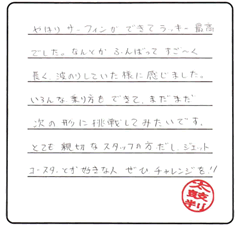 やはり サーフィンが できて ラッキー 最高
でした。なんとか ふんばって すご〜く
長く、波のりしていた様に感じました。
いろんな乗り方も できて、まだまだ
次の形に挑戦してみたいです。
とても 親切な スタッフの方だし、ジェット
コースターとか好きな人 ぜひ チャレンジを!!
太鼓判